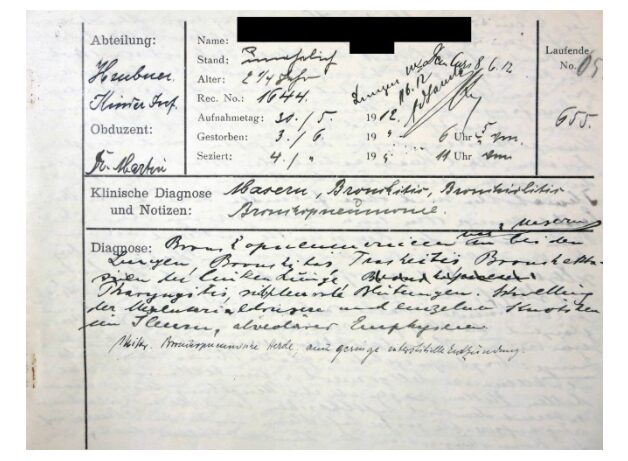 Abteilung:
Heubner.
Kinder Inf.
Obduzent:
Dr. Martin
Name:
Stand:
Alter: 2 1/4 Jahr
Rec. No.: 1644.
Aufnahmetag: 30./5. 1912.
Gestorben: 3./6. 19 " 6 Uhr
Seziert: 4./ " 19 " 11 Uhr
Lungen
8. 6. 12
Laufende
No.
655.
Klinische Diagnose Masern, Bronchitis, Bronchiolitis
und Notizen: Bronchopneumonie.
nach Masern
Diagnose: Bronchopneumonieen in beiden
Lungen Bronchitis Tracheitis Bronchekta-
sien der linken Lunge
Pharyngitis, subpleurale Blutungen. Schwellung
der Mesenterialdrüsen und einzelner Knötchen
im Ileum, alveoläres Emphysem
Mikr. Bronchopneumonische Herde, eine geringe interstitielle Entzündung.